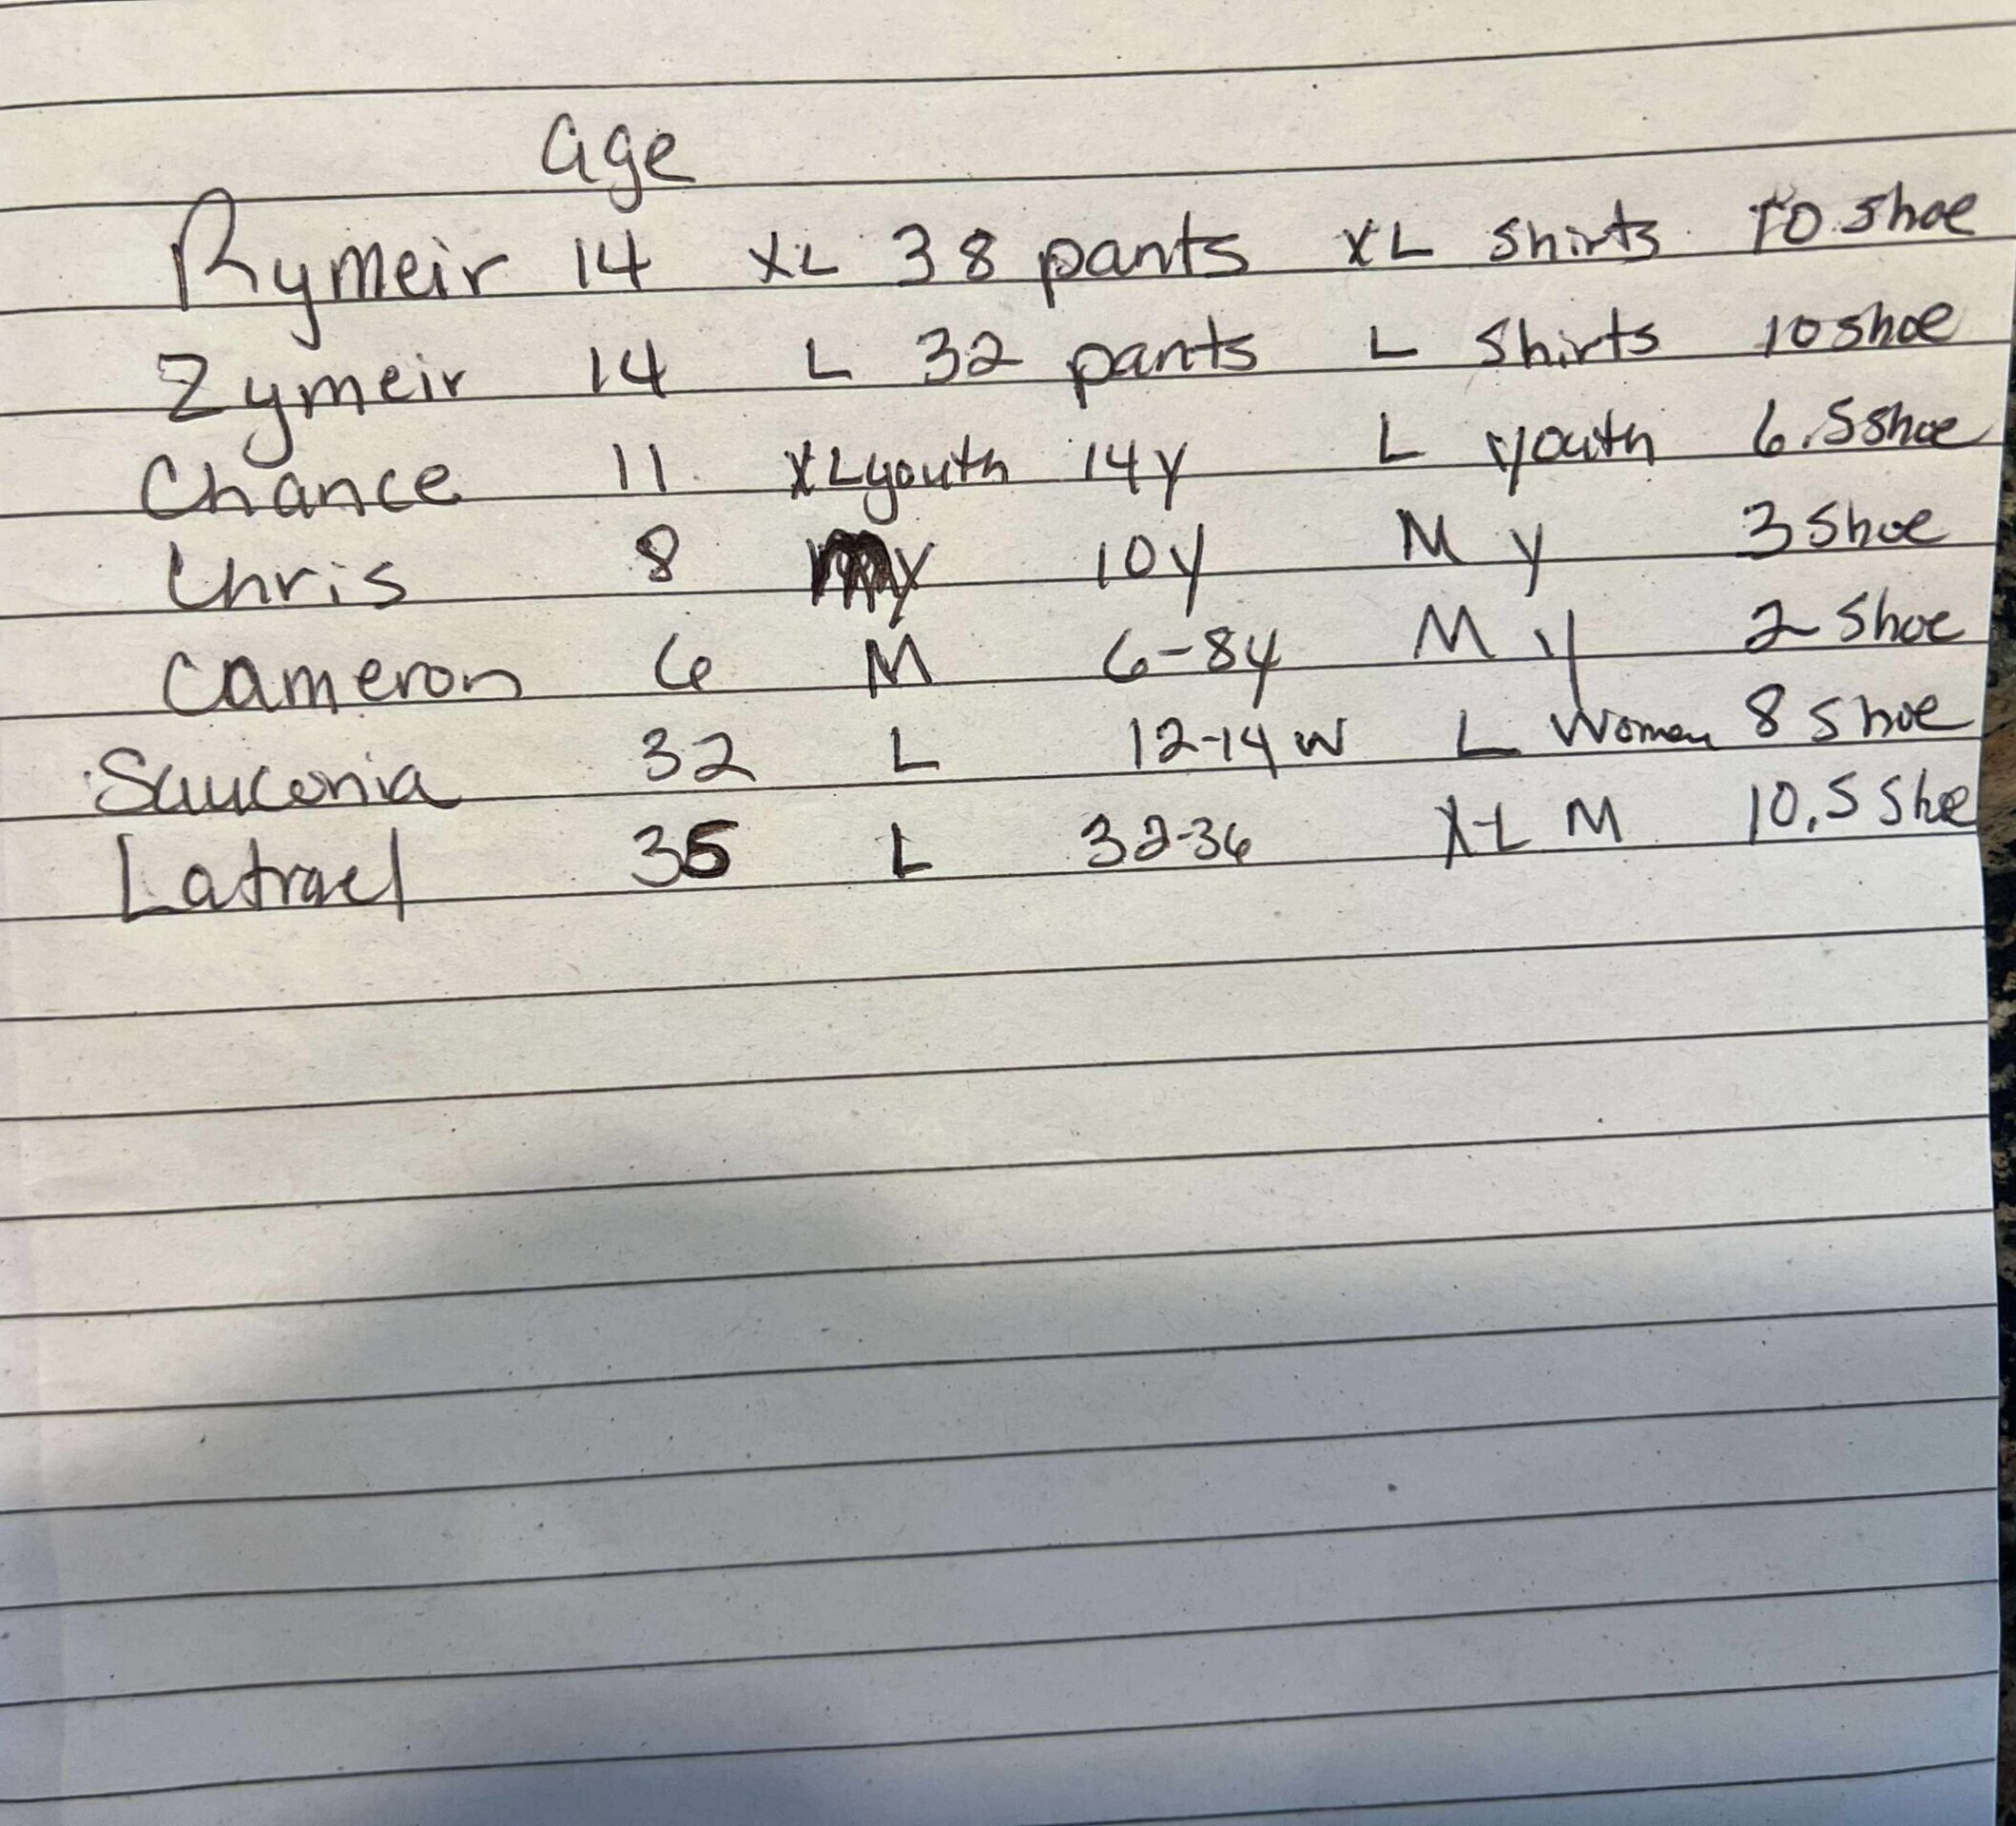 age
Rymeir 14 XL 38 pants XL shirts 10 shoe
Zymeir 14 L 32 pants L shirts 10 shoe
Chance 11 XL youth 14y L youth 6.5 shoe
Chris 8 my 10y M y 3 shoe
Cameron 6 M 6-8y M y 2 shoe
Sauconia 32 L 12-14 W L Women 8 shoe
Latrael 35 L 32-36 XL M 10.5 shoe